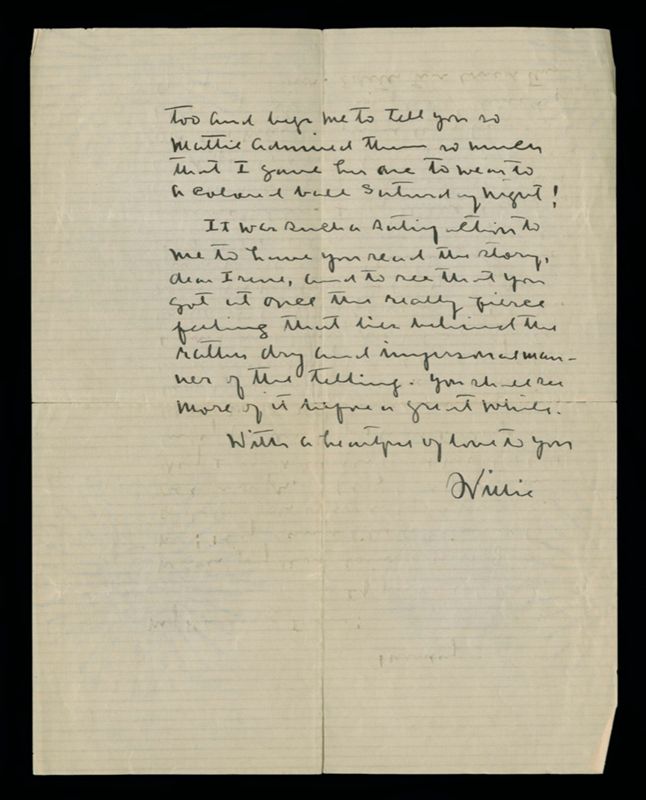 too and begs me to tell you so
Mattie admired them so much
that I gave her one to wear to
a colored ball Saturday night!
It was such a satisfaction to
me to have you read the story,
dear Irene, and to see that you
got at once the really fierce
feeling that lies behind the
rather dry and impersonal man-
ner of the telling. You shall see
more of it before a great while.
With a heartful of love to you
Willie